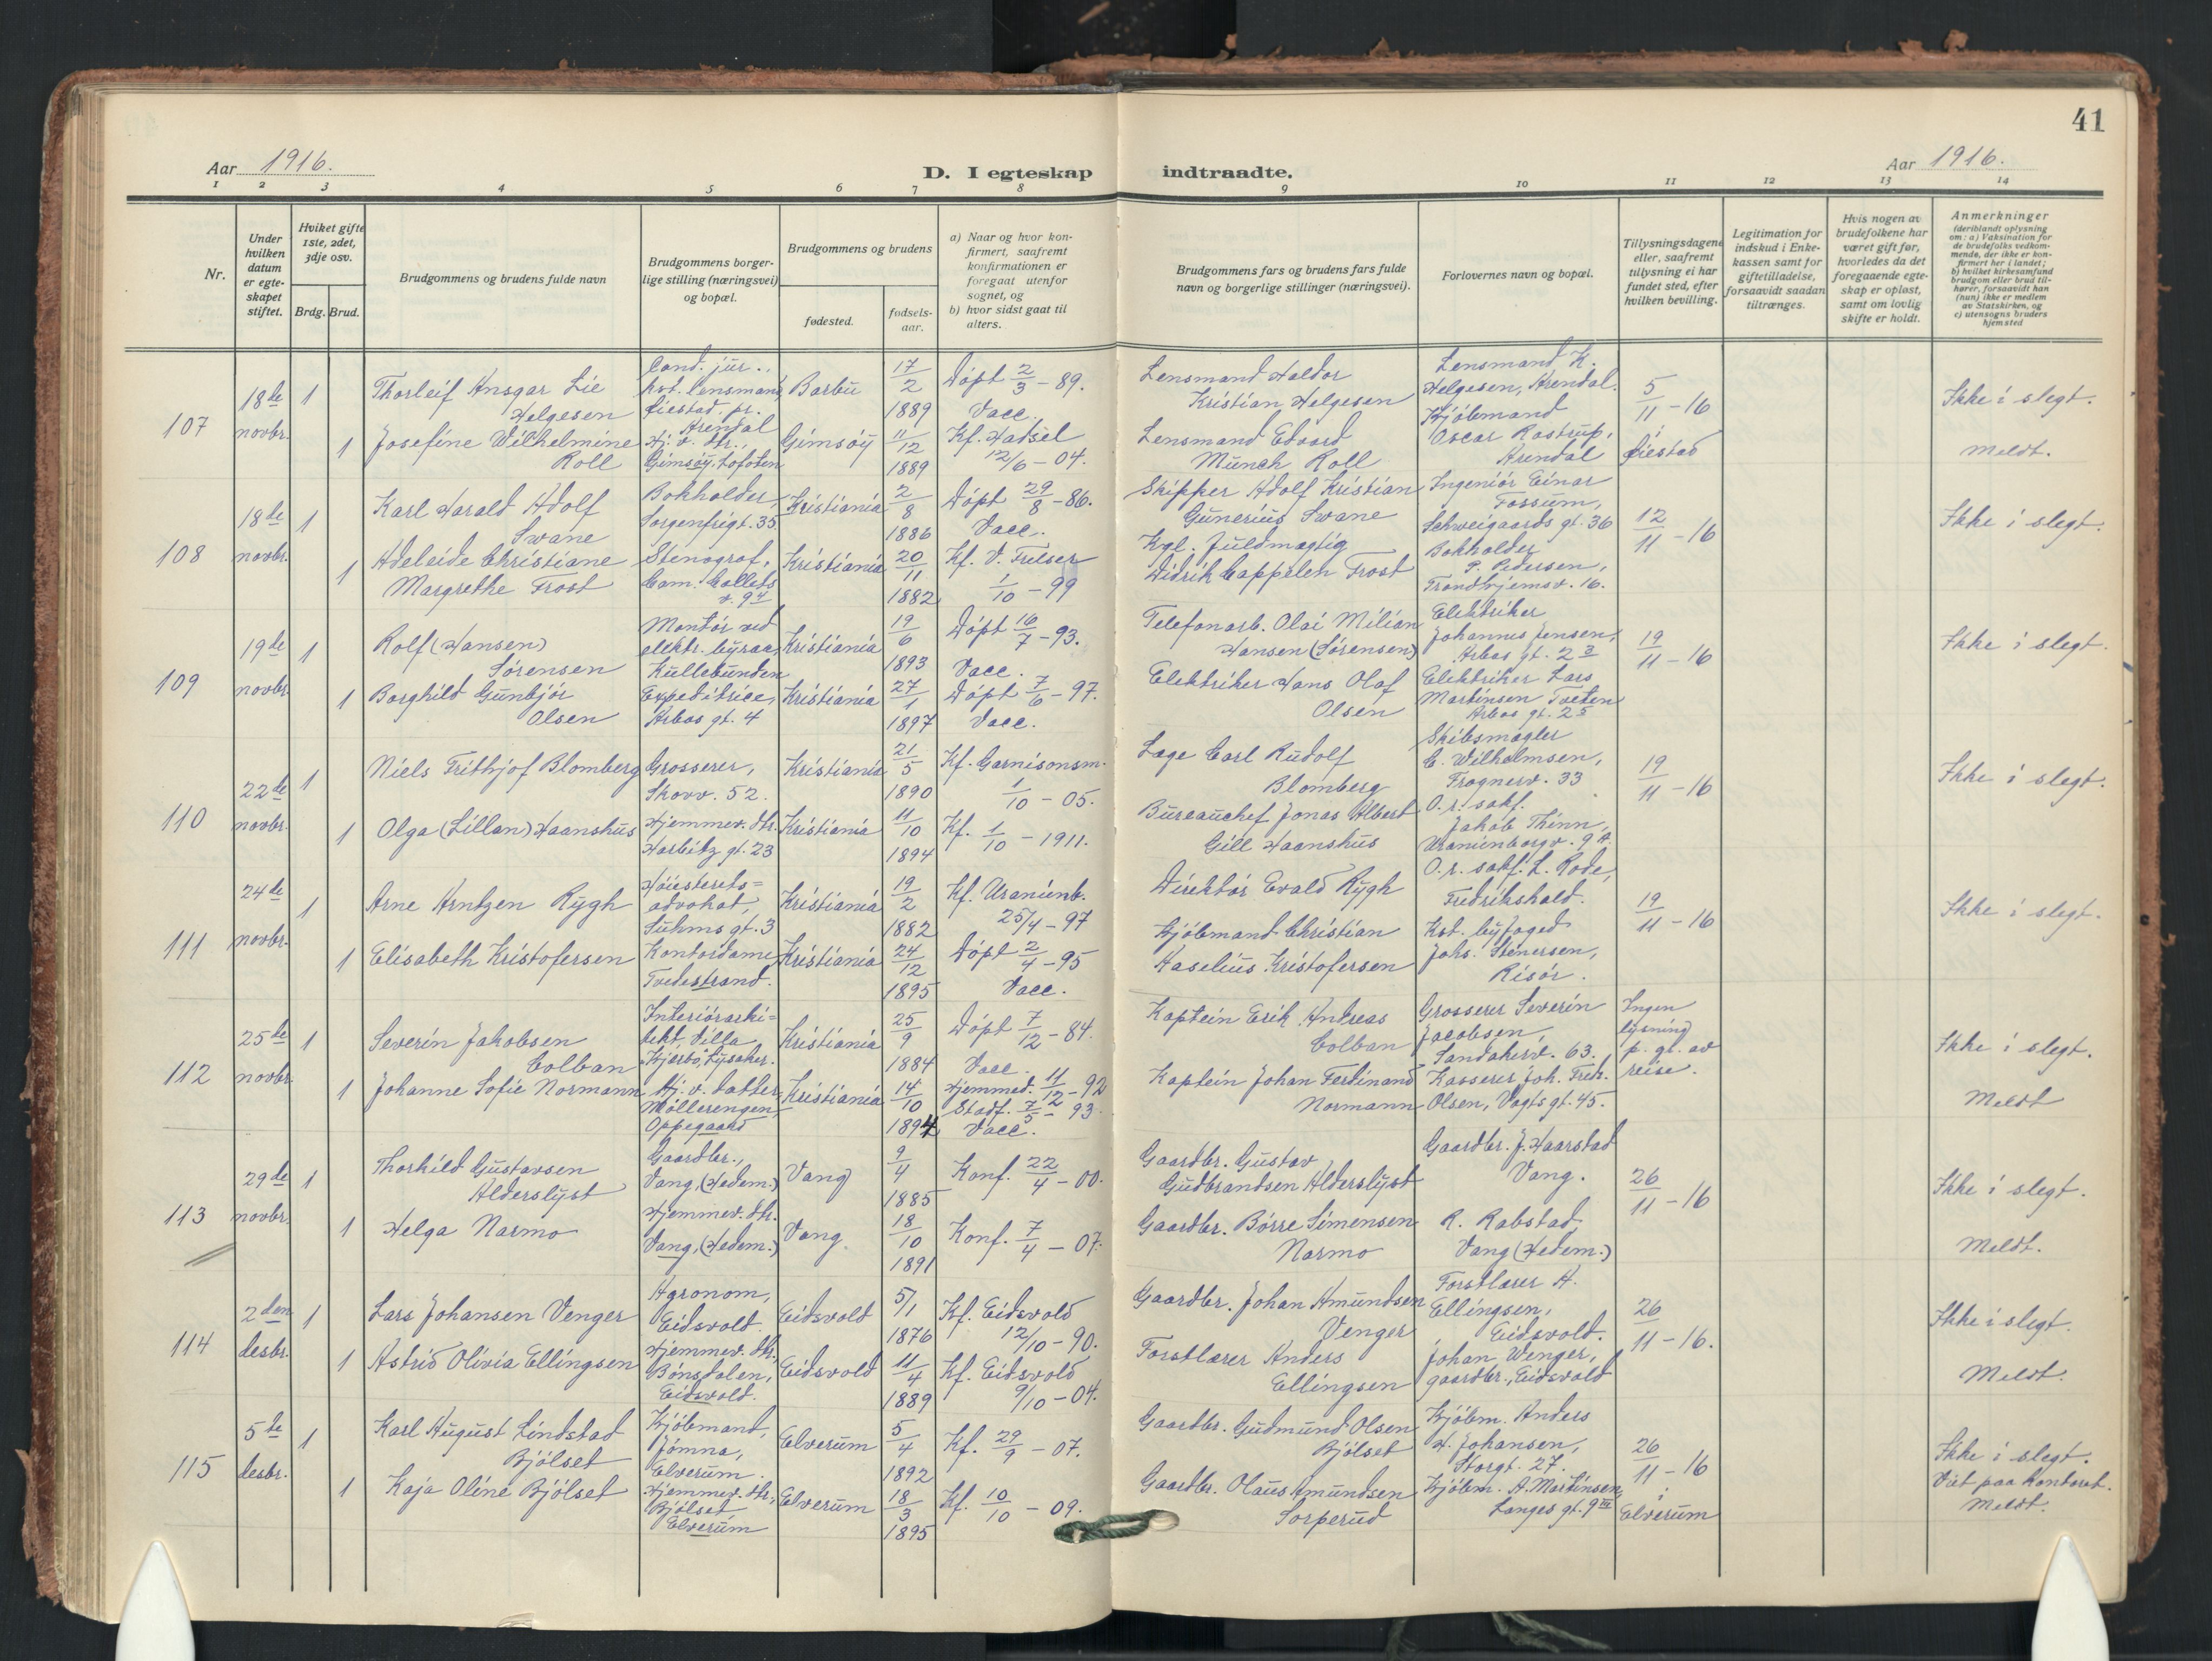 41
Aar 1916.
D. I egteskap indtraadte.
Aar 1916.
1 2 3 4 5 6 7 8 9 10 11 12 13 14
Nr.
Under hvilken datum er egteskapet stiftet.
Hvilket gifte 1ste, 2det, 3dje osv.
Brdg. Brud.
Brudgommens og brudens fulde navn
Brudgommens borgerlige stilling (næringsvei) og bopæl.
Brudgommens og brudens
fødested.
fødselsaar.
a) Naar og hvor konfirmert, saafremt konfirmationen er foregaat utenfor sognet, og
b) hvor sidst gaat til alters.
Brudgommens fars og brudens fars fulde navn og borgerlige stillinger (næringsvei).
Forlovernes navn og bopæl.
Tillysningsdagene eller, saafremt tillysning ei har fundet sted, efter hvilken bevilling.
Legitimation for indskud i Enkekassen samt for giftetilladelse, forsaavidt saadan tiltrænges.
Hvis nogen av brudefolkene har været gift før, hvorledes da det foregaaende egteskap er opløst, samt om lovlig skifte er holdt.
Anmerkninger (deriblandt oplysning om: a) Vaksination for de brudefolks vedkommende, der ikke er konfirmert her i landet; b) hvilket kirkesamfund brudgom eller brud tilhører, forsaavidt han (hun) ikke er medlem av Statskirken, og c) utensogns bruders hjemsted
107
18de novbr.
1
Thorleif Ansgar Lie Helgesen
Cand. jur., kst. lensmand, Øiestad pr. Arendal
Barbu
17/2 1889
Døpt 2/3 - 89. Vacc.
Lensmand Haldor Kristian Helgesen
Lensmand K. Helgesen, Arendal.
5/11 - 16 i Øiestad
Ikke i slegt.
1
Josefine Wilhelmine Roll
Hj. v. dtr., Gimsøy, Lofoten
Gimsøy
11/12 1889
Kf. Hadsel 12/6 - 04.
Lensmand Edvard Munch Roll
Kjøbmand Oscar Rostrup, Arendal
Meldt.
108
18de novbr.
1
Karl Harald Adolf Swane
Bokholder, Sorgenfrigt. 35
Kristiania
2/8 1886
Døpt 29/8 - 86. Vacc.
Skipper Adolf Kristian Gunerius Swane
Ingeniør Einar Fossum, Schweigaards gt. 36
12/11 - 16
Ikke i slegt.
1
Adeleide Christiane Margrethe Frost
Stenograf, Cam. Colletts v. 9
Kristiania
20/11 1882
Kf. V. Frelser 1/10 - 99
Kgl. fuldmægtig Didrik Cappelen Frost
Bokholder P. Pedersen, Trondhjemsv. 16.
109
19de novbr.
1
Rolf (Hansen) Sørensen
Montør ved elektr. byraa, Kullebunden
Kristiania
19/6 1893
Døpt 16/7 - 93. Vacc.
Telefonarb. Olai Milian Hansen (Sørensen)
Elektriker Johannes Jensen, Arbos gt. 2
19/11 - 16
Ikke i slegt.
1
Borghild Gunbjør Olsen
Expeditrice, Arbos gt. 4
Kristiania
27/1 1897
Døpt 7/6 - 97. Vacc.
Elektriker Hans Olaf Olsen
Elektriker Lars Martinsen Tveten Arbos gt. 2
110
22de novbr.
1
Niels Frithjof Blomberg
Grosserer, Skovv. 52.
Kristiania
21/5 1890
Kf. Garnisonsm. 1/10 - 05.
Læge Carl Rudolf Blomberg
Skibsmægler C. Wilhelmsen, Frognerv. 33
19/11 - 16
Ikke i slegt.
1
Olga (Lillan) Haanshus
Hjemmev. dtr. Harbitz gt. 23
Kristiania
11/10 1894
Kf. 1/10 - 1911.
Bureauchef Jonas Albert Gill Haanshus
O. r. sakf. Jakob Thinn, Uranienborgv. 9
111
24de novbr.
1
Arne Arntzen Rygh
Høiesterets= advokat, Suhms gt. 3
Kristiania
19/2 1882
Kf. Uranienb. 25/4 - 97
Direktør Evald Rygh
O. r. sakf. L. Rode, Fredrikshald.
19/11 - 16
Ikke i slegt.
1
Elisabeth Kristofersen
Kontordame, Tvedestrand.
Kristiania
24/12 1895
Døpt 2/4 - 95 Vacc.
Kjøbmand Christian Haselius Kristofersen
Kst. byfoged Johs. Stenersen, Risør.
112
25de novbr.
1
Severin Jakobsen Colban
Interiørarki= tekt, Villa "Kjærbo", Lysaker.
Kristiania
25/9 1884
Døpt 7/12 - 84. Vacc.
Kaptein Erik Andreas Colban
Grosserer Severin Jacobsen, Sandakerv. 63.
Ingen lysning p. gr. av reise.
Ikke i slegt.
1
Johanne Sofie Normann
Hj. v. datter, Møllerengen Oppegaard
Kristiania
14/10 1894
Hjemmed. 11/12 - 92 Stadf. 7/5 - 93. Vacc.
Kaptein Johan Ferdinand Normann
Kasserer Joh. Fredr. Olsen, Vogts gt. 45.
Meldt
113
29de novbr.
1
Thorkild Gustavsen Alderslyst
Gaardbr., Vang, (Hedem.)
Vang
9/4 1885
Konf. 22/4 - 00.
Gaardbr. Gustav Gudbrandsen Alderslyst
Gaardbr. J. Haarstad Vang.
26/11 - 16
Ikke i slegt.
1
Helga Narmo
Hjemmev. dtr. Vang, (Hedem.)
Vang.
18/10 1891
Konf. 7/4 - 07.
Gaardbr. Børre Simensen Narmo
R. Rabstad, Vang (Hedem.)
Meldt.
114
2den desbr.
1
Lars Johansen Venger
Agronom, Eidsvold.
Eidsvold
5/1 1876
Kf. Eidsvold 12/10 - 90.
Gaardbr. Johan Amundsen Venger
Forstlærer A. Ellingsen, Eidsvold.
26/11 - 16.
Ikke i slegt.
1
Astrid Olivia Ellingsen
Hjemmev. dtr., Bønsdalen, Eidsvold.
Eidsvold
11/4 1889
Kf. Eidsvold 9/10 - 04.
Forstlærer Anders Ellingsen
Johan Wenger, gaardbr., Eidsvold
Meldt.
115
5te desbr.
1
Karl August Lindstad Bjølset
Kjøbmand, Jømna, Elverum.
Elverum
5/4 1892
Kf. 29/9 - 07.
Gaardbr. Gudmund Olsen Bjølset
Kjøbm. Anders H. Johansen, Storgt. 27.
26/11 - 16 i Elverum
Ikke i slegt.
Viet paa Kontoret.
1
Kaja Oline Bjølset
Hjemmev. dtr., Bjølset Elverum
Elverum
18/3 1895
Kf. 10/10 - 09.
Gaardbr. Olaus Amundsen Sorperud
Kjøbm. A. Martinsen, Langes gt. 9 III
Meldt.